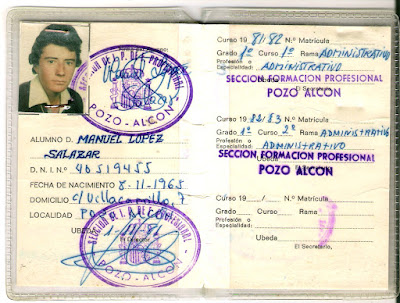 SECCION DE F. P. PROFESIONAL
POZO-ALCON
ALUMNO D. MANUEL LOPEZ
SALAZAR
D. N. I. N.º 40519455
FECHA DE NACIMIENTO 8-11-1965
DOMICILIO C/
LOCALIDAD POZO ALCON
UBEDA 1-
El Director
POZO-ALCON
Curso 19 81/82 N.º Matrícula
Grado 1º Curso 1º Rama ADMINISTRATIVO
Profesión o
Especialidad: ADMINISTRATIVO
SECCION FORMACION PROFESIONAL
El Secretario
POZO ALCON
Curso 19 82/83 N.º Matrícula
Grado 1º Curso 2º Rama ADMINISTRATIVO
Profesión o
Especialidad: ADMINISTRATIVO
SECCION FORMACION PROFESIONAL
Ubeda
POZO ALCON
Curso 19 / N.º Matrícula
Grado Curso Rama
Profesión o
Especialidad:
Ubeda
El Secretario,